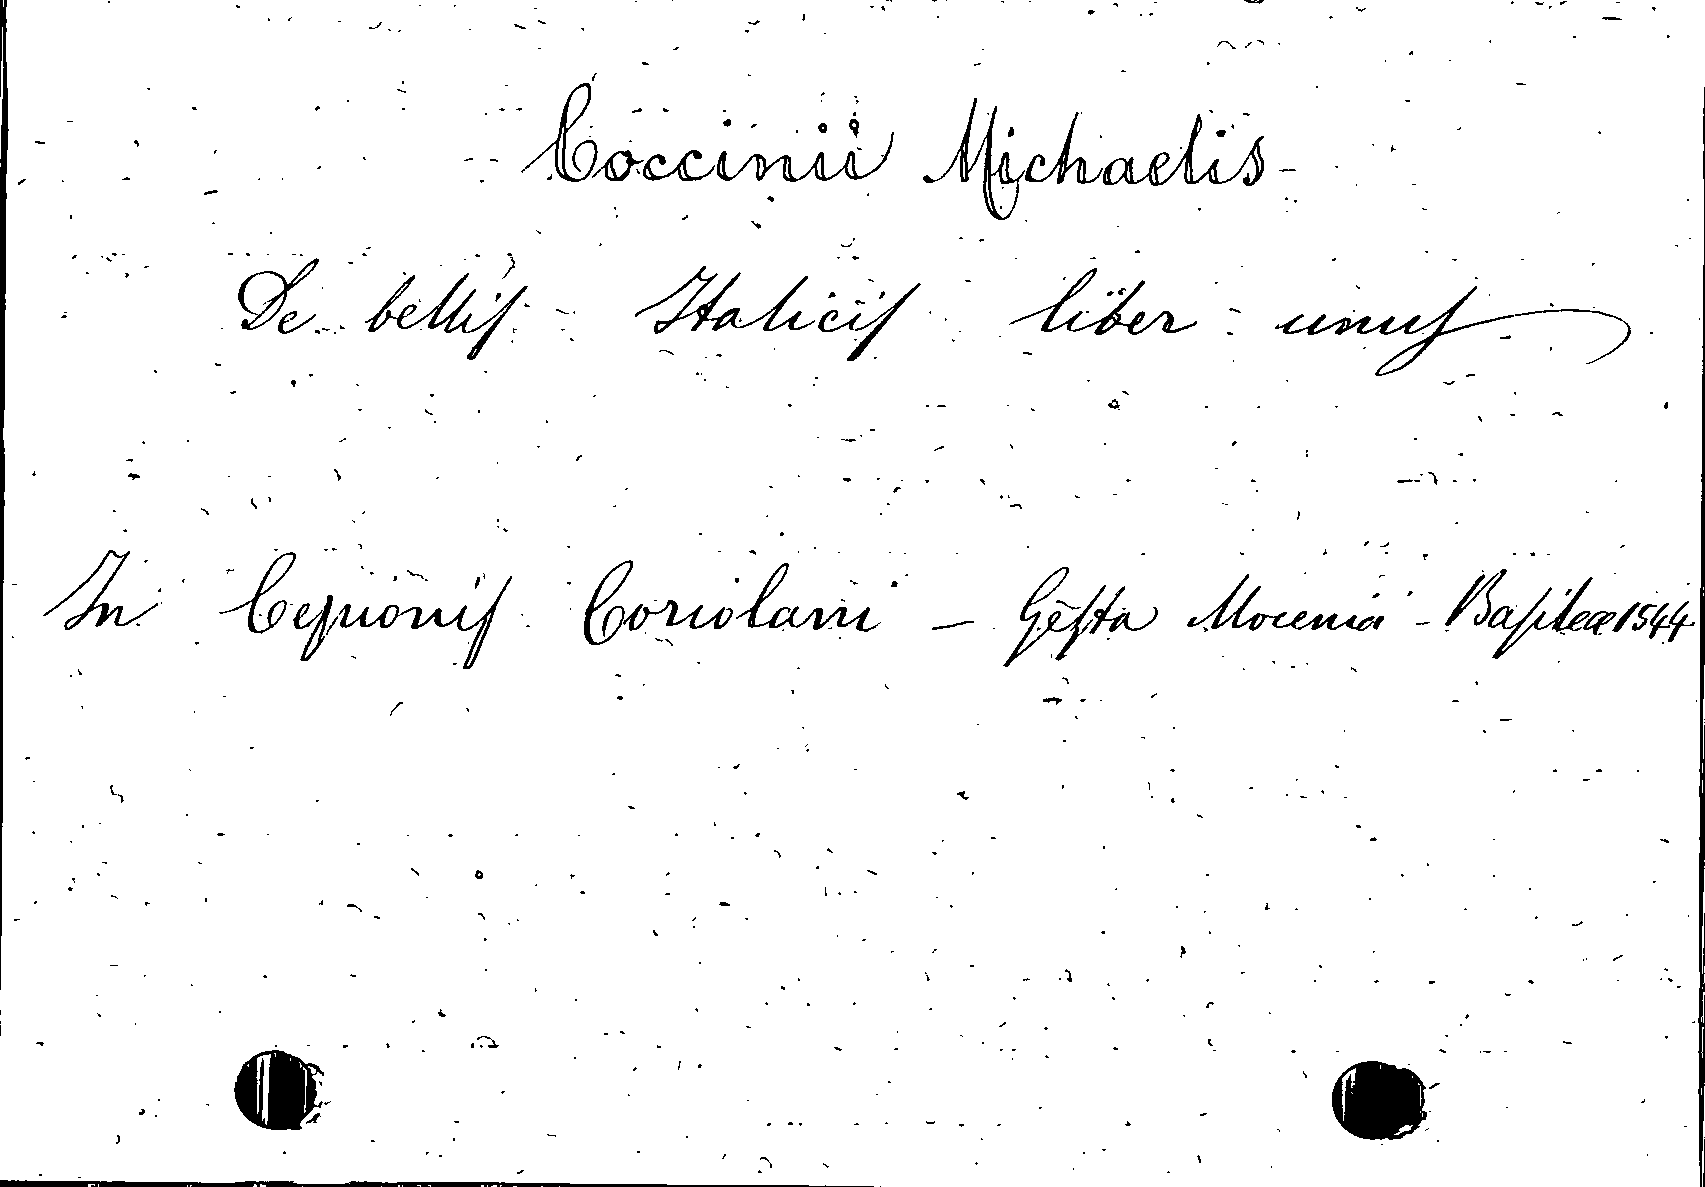 Coccinii Michaelis
De bellis Italicis liber unus
In Cepionis Coriolani - Gesta Mocenici - Basileæ 1544